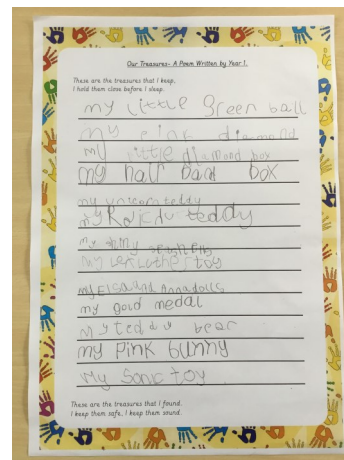 Our Treasures- A Poem Written by Year 1.
These are the treasures that I keep,
I hold them close before I sleep.
my little green ball
my pink diamond
my little diamond box
my hair band box
my unicorn teddy
my teddy
my shiny
my toy
my Elsa and Anna dolls
my gold medal
my teddy bear
my pink bunny
my Sonic toy
These are the treasures that I found,
I keep them safe, I keep them sound.